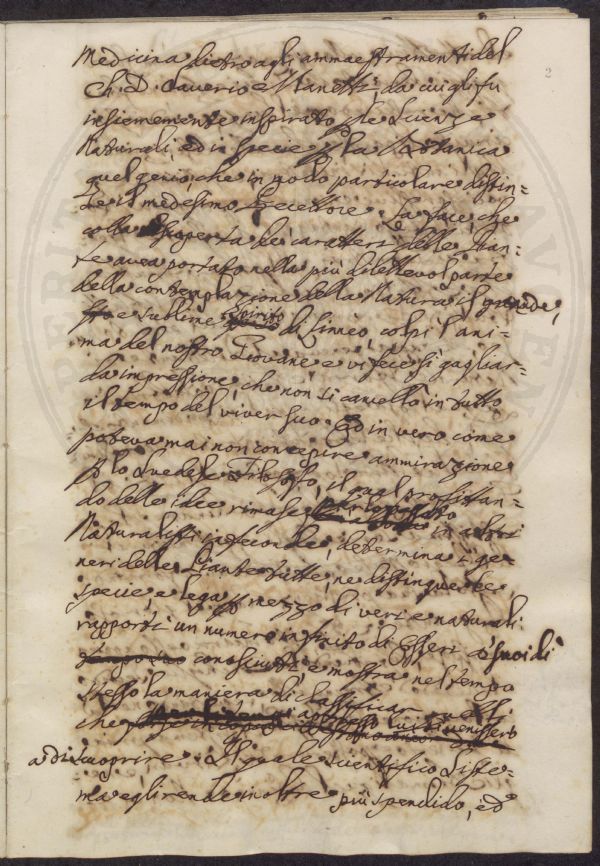 2
Medicina dietro agli ammaestramenti del
Ch. D. Saverio Manetti, da cui gli fu
insiememente inspirato p le Scienze
Naturali, ed in specie p la Botanica
quel genio, che in modo particolare distin=
se il medesimo Precettore. La face, che
colla scoperta de' caratteri delle Pian=
te avea portato nella più dilettevol parte
della contemplazione della Natura il grande,
e sublime Spirito di Linneo, colpì l'ani=
ma del nostro Giovane e vi fece sì gagliar=
da impressione, che non si cancellò in tutto
il tempo del viver suo. Ed in vero come
poteva mai non concepire ammirazione
p lo Svedese Filosofo, il qual profittan=
do delle idee rimase in altri
Naturalisti infeconde, determina i ge=
neri delle Piante tutte, ne distingue le
specie, e lega p mezzo di veri e naturali
rapporti un numero infinito di Esseri a' suoi dì
conosciuti, e mostra nel tempo
stesso la maniera di classificar quelli
che
a discuoprire. Il quale scientifico Siste=
ma egli rende inoltre più spendido, ed